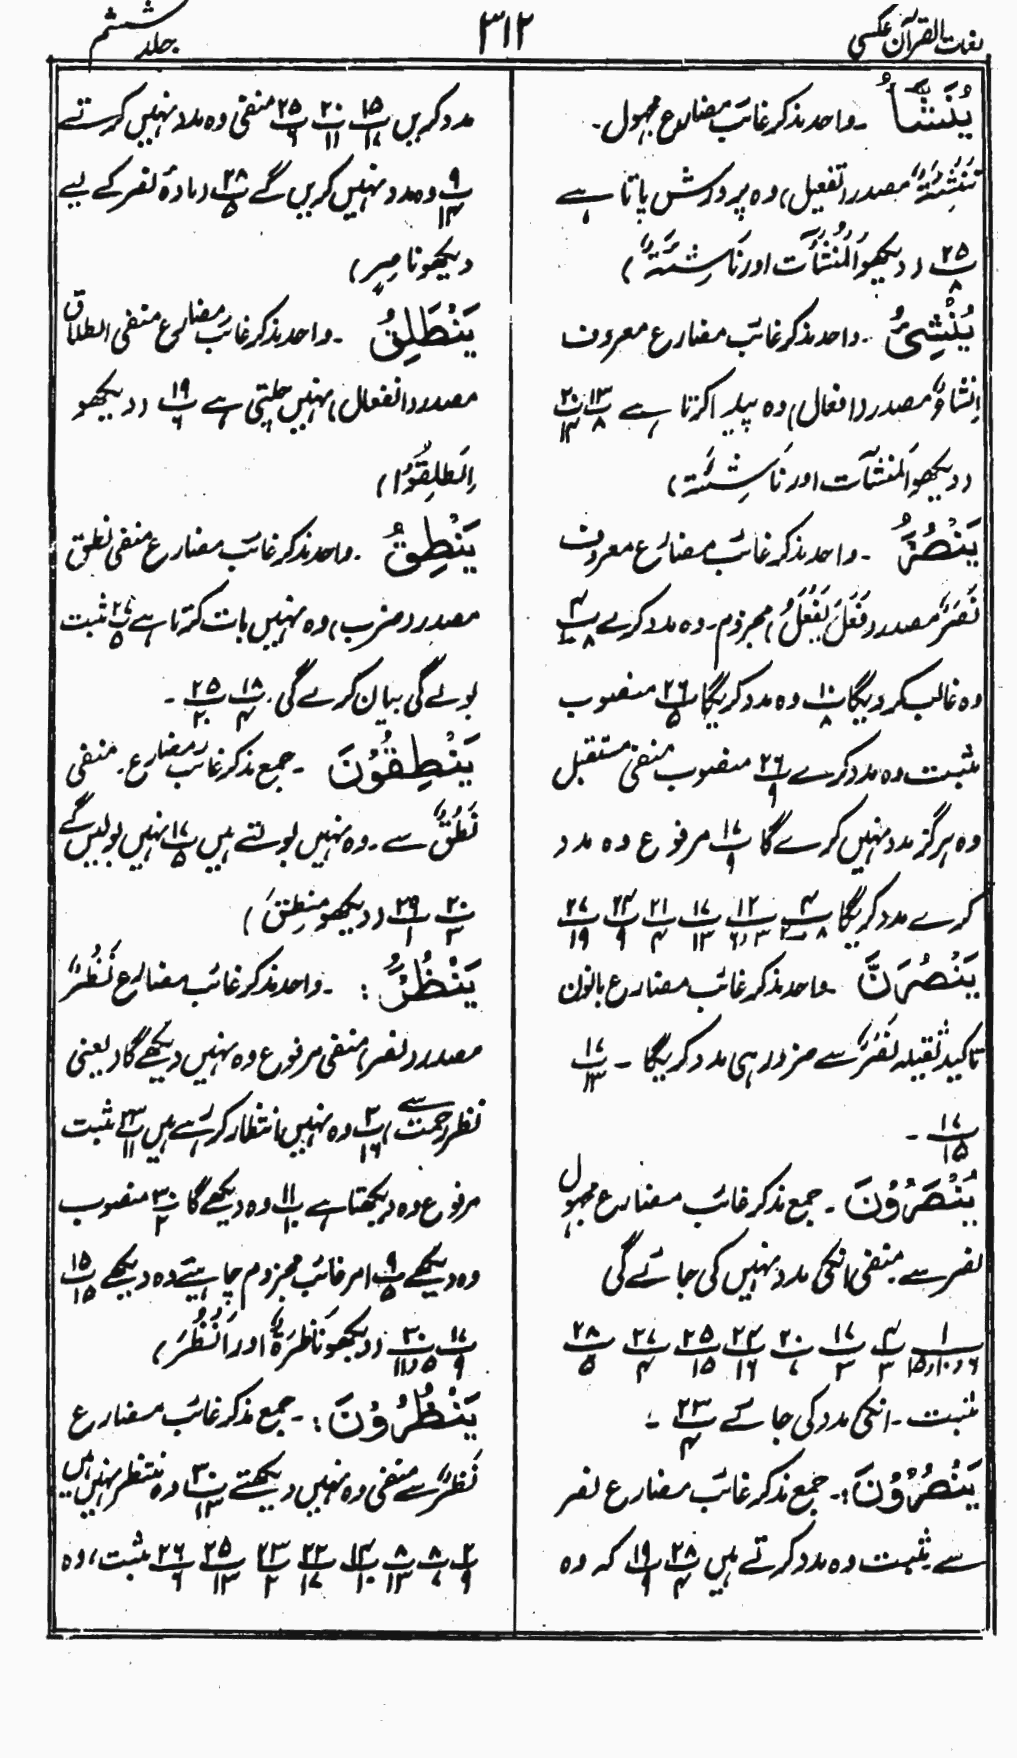 لغات القرآن عکسی
۳۱۲
جلد ششم
یُنَشَّأُ ۔ واحد مذکر غائب مضارع مجہول۔
تَنْشِئَةٌ مصدر (تفعیل) وہ پرورش پاتا ہے
۲۵/۸ (دیکھو اَلْمُنْشَآت اور نَاشِئَةٌ)
یُنْشِئُ ۔ واحد مذکر غائب مضارع معروف
اِنْشَاءٌ مصدر (افعال) وہ پیدا کرتا ہے ۱۳/۸ ۲۰/۱۴
(دیکھو اَلمنشآت اور نَاشِئَة)
یَنْصُرُ ۔ واحد مذکر غائب مضارع معروف
نَصْرٌ مصدر (فَعَلَ یَفْعُلُ) مجزوم۔ وہ مدد کرے ۴/۸
وہ غالب کر دیگا ۱۰/۸ وہ مدد کریگا ۲۶/۵ منصوب
مثبت وہ مدد کرے ۲۶/۹ منصوب منفی مستقبل
وہ ہرگز مدد نہیں کرے گا ۱۷/۹ مرفوع وہ مدد
کرے مدد کریگا ۴/۸ ۱۲/۳،۶ ۱۷/۱۳ ۲۱/۴ ۲۴/۹ ۲۷/۱۹
یَنْصُرَنَّ ۔ واحد مذکر غائب مضارع بانون
تاکید ثقیلہ نَصْرٌ سے ضرور ہی مدد کریگا ۔ ۱۷/۱۳
۱۷/۱۵ ۔
یُنْصَرُوْنَ ۔ جمع مذکر غائب مضارع مجہول
نصر سے۔ منفی انکی مدد نہیں کی جائے گی
۱/۶،۱۰،۱۵ ۴/۳ ۱۷/۳ ۲۰/۷ ۲۴/۱۶ ۲۵/۱۵ ۲۷/۴ ۲۸/۵
مثبت۔ انکی مدد کی جائے ۲۳/۴ ۔
یَنْصُرُوْنَ:۔ جمع مذکر غائب مضارع نصر
سے۔ مثبت وہ مدد کرتے ہیں ۲۸/۴ ۱۹/۹ کہ وہ
مدد کریں ۱۵/۱۷ ۲۰/۱۱ ۲۵/۶ منفی وہ مدد نہیں کرتے
۹/۱۴ وہ مدد نہیں کریں گے ۲۸/۵ (مادۂ نصر کے لیے
دیکھو ناصِر)
یَنْطَلِقُ ۔ واحد مذکر غائب مضارع منفی انطلاق
مصدر (انفعال) نہیں چلتی ہے ۱۹/۶ (دیکھو
اِنطَلِقُوْا)
یَنْطِقُ ۔ واحد مذکر غائب مضارع منفی نطق
مصدر (ضرب) وہ نہیں بات کرتا ہے ۲۷/۵ مثبت
بولے گی بیان کرے گی ۱۸/۴ ۲۵/۲۰ ۔
یَنْطِقُوْنَ ۔ جمع مذکر غائب مضارع۔ منفی
نُطْقٌ سے۔ وہ نہیں بولتے ہیں ۱۷/۵ نہیں بولیں گے
۲۰/۳ ۲۹/۱ (دیکھو منطِق)
یَنْظُرُ: ۔ واحد مذکر غائب مضارع نَظْرٌ
مصدر (نصر) منفی مرفوع وہ نہیں دیکھے گا (یعنی
نظرِ رحمت سے) ۳/۱۶ وہ نہیں انتظار کر رہے ہیں ۲۳/۱۱ مثبت
مرفوع وہ دیکھتا ہے ۱۱/۱۰ وہ دیکھے گا ۳۰/۲ منصوب
وہ دیکھے ۹/۵ امر غائب مجزوم چاہیئے وہ دیکھے ۱۵/۱۵
۱۷/۹ ۳۰/۵،۱۱ (دیکھو نَاظِرَةٌ اور اَنْظُرُ)
یَنْظُرُوْنَ:۔ جمع مذکر غائب مضارع
نَظْرٌ سے منفی وہ نہیں دیکھتے ۳۰/۱۳ وہ منتظر نہیں ہیں
۲/۹ ۸/۷ ۸/۱۳ ۱۴/۱۰ ۲۲/۱۷ ۲۳/۲ ۲۵/۱۳ ۲۶/۶ مثبت، وہ